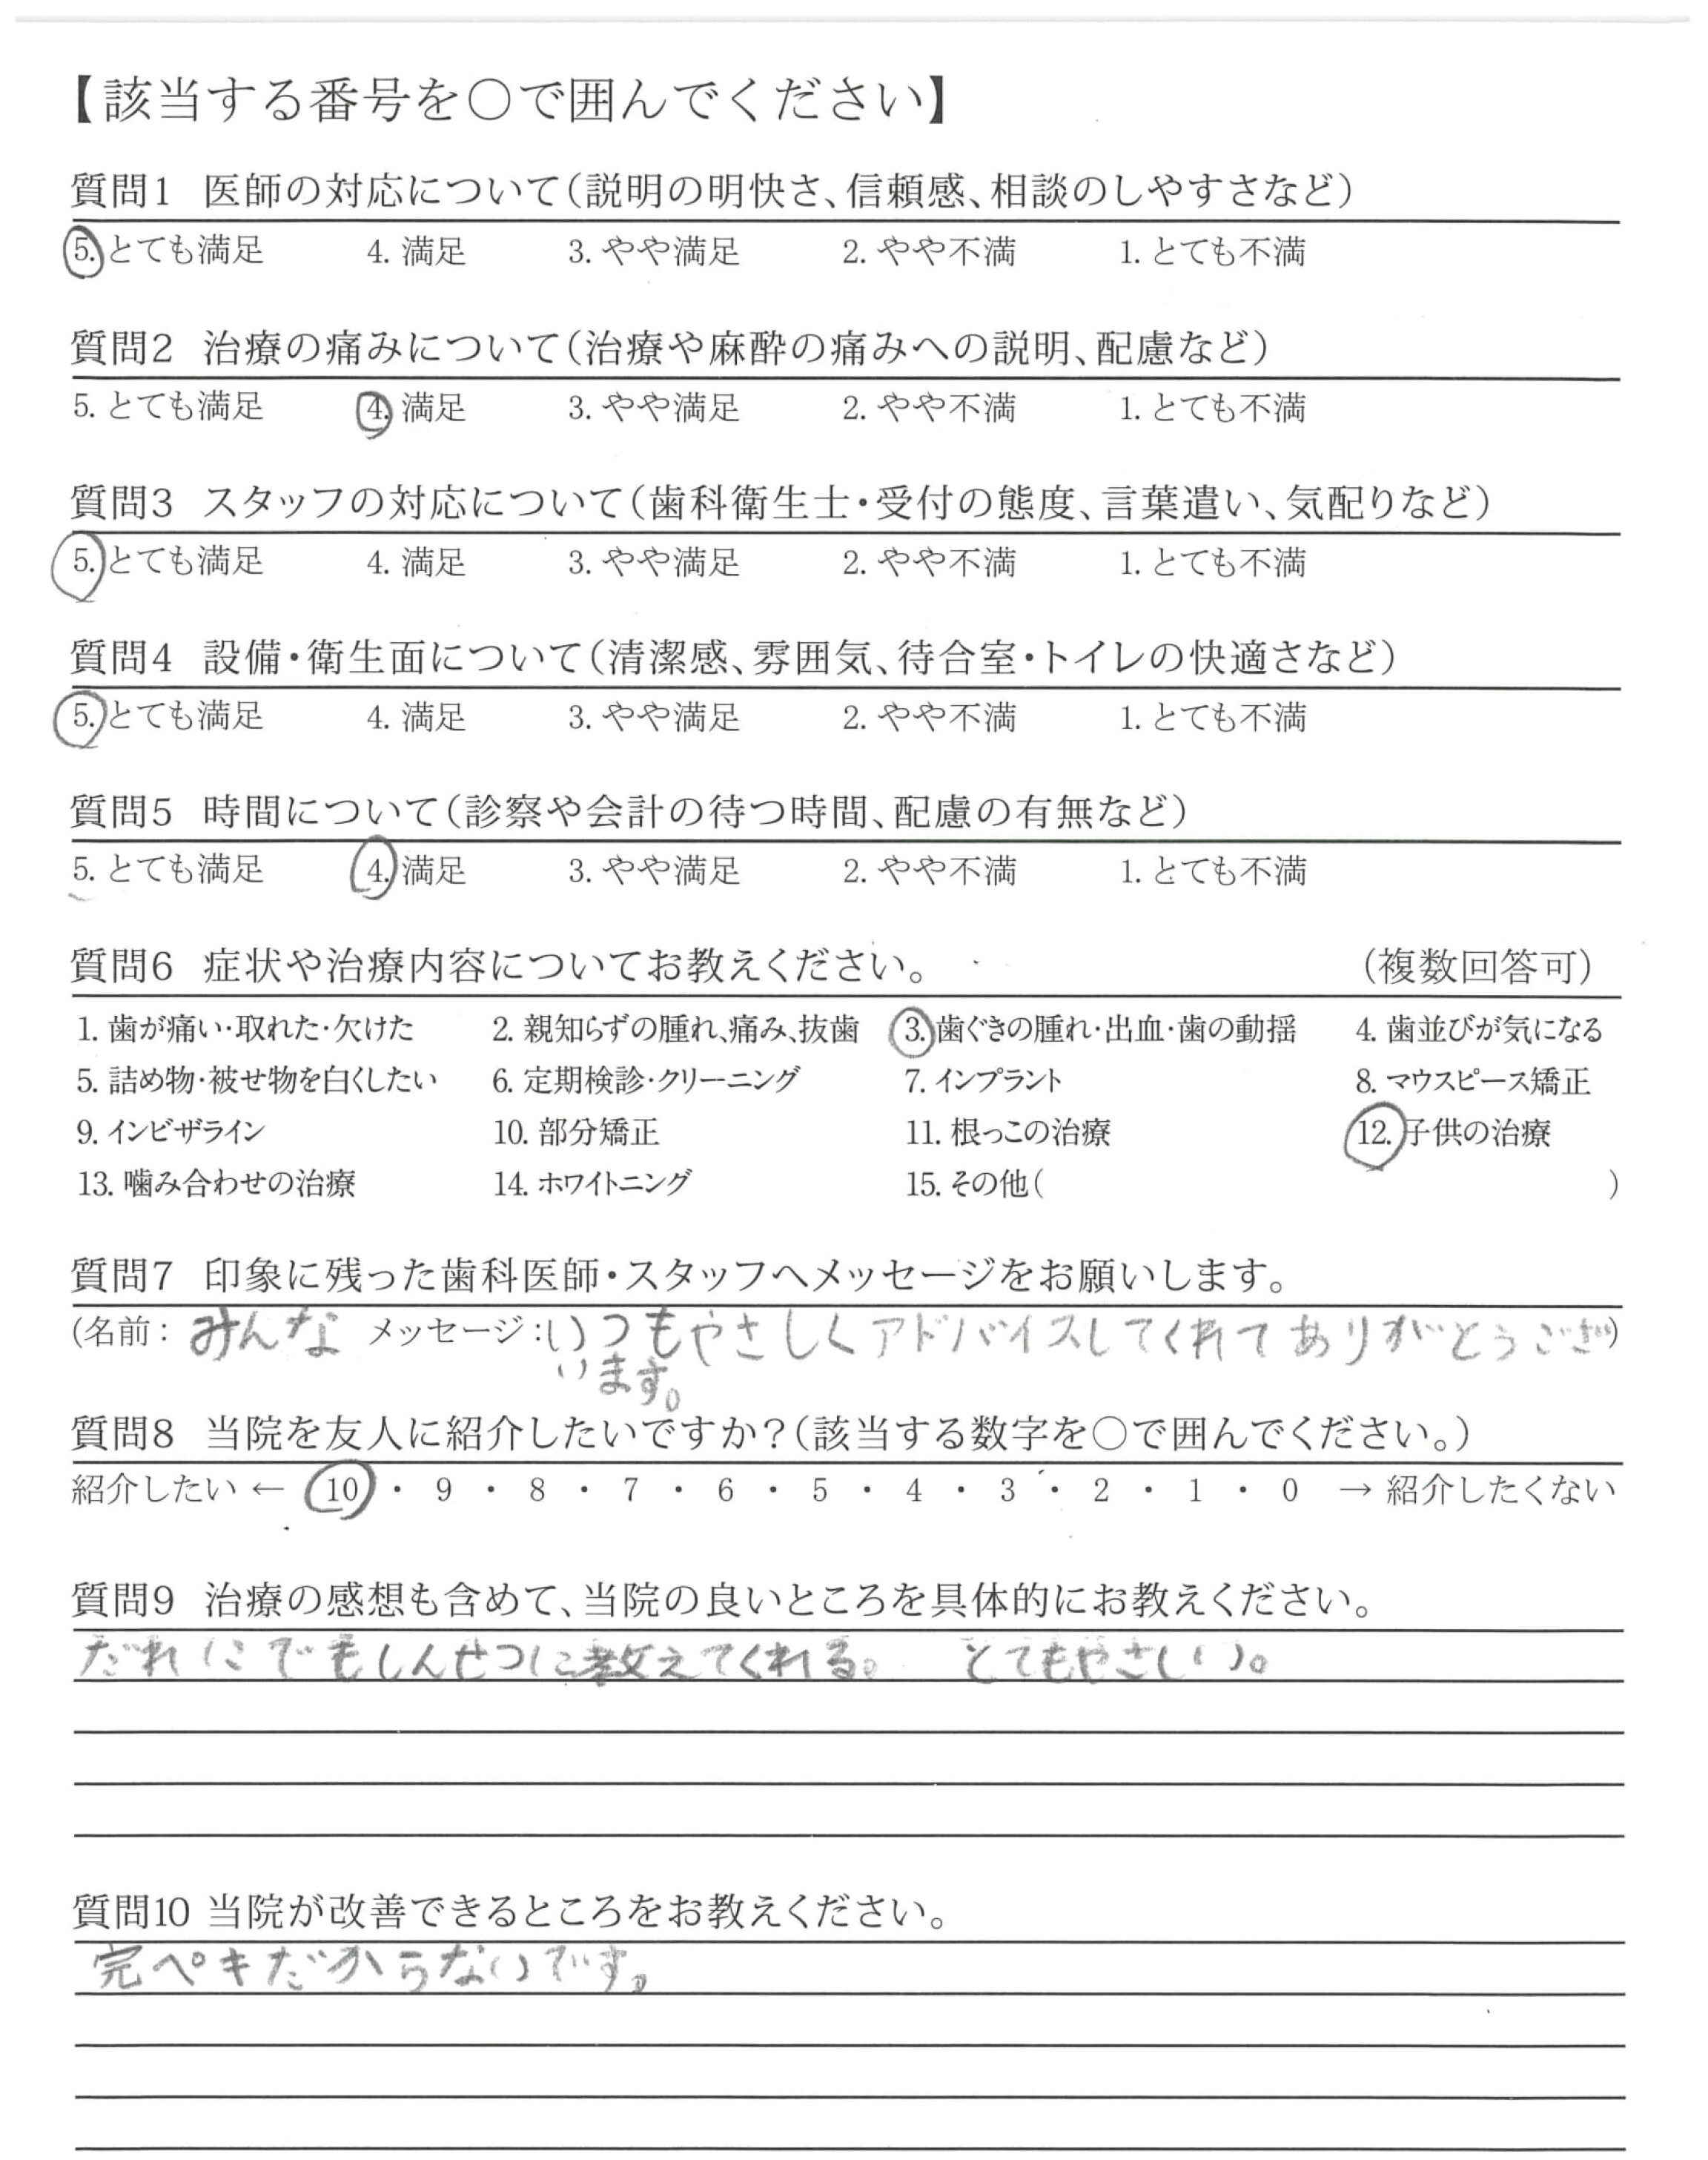 【該当する番号を○で囲んでください】
質問1 医師の対応について(説明の明快さ、信頼感、相談のしやすさなど)
5. とても満足 4. 満足 3. やや満足 2. やや不満 1. とても不満
質問2 治療の痛みについて(治療や麻酔の痛みへの説明、配慮など)
5. とても満足 4. 満足 3. やや満足 2. やや不満 1. とても不満
質問3 スタッフの対応について(歯科衛生士・受付の態度、言葉遣い、気配りなど)
5. とても満足 4. 満足 3. やや満足 2. やや不満 1. とても不満
質問4 設備・衛生面について(清潔感、雰囲気、待合室・トイレの快適さなど)
5. とても満足 4. 満足 3. やや満足 2. やや不満 1. とても不満
質問5 時間について(診察や会計の待つ時間、配慮の有無など)
5. とても満足 4. 満足 3. やや満足 2. やや不満 1. とても不満
質問6 症状や治療内容についてお教えください。 (複数回答可)
1. 歯が痛い・取れた・欠けた 2. 親知らずの腫れ、痛み、抜歯 3. 歯ぐきの腫れ・出血・歯の動揺 4. 歯並びが気になる
5. 詰め物・被せ物を白くしたい 6. 定期検診・クリーニング 7. インプラント 8. マウスピース矯正
9. インビザライン 10. 部分矯正 11. 根っこの治療 12. 子供の治療
13. 噛み合わせの治療 14. ホワイトニング 15. その他( )
質問7 印象に残った歯科医師・スタッフへメッセージをお願いします。
(名前: みんな メッセージ:いつもやさしくアドバイスしてくれてありがとうござ)
います。
質問8 当院を友人に紹介したいですか?(該当する数字を○で囲んでください。)
紹介したい ← 10 ・ 9 ・ 8 ・ 7 ・ 6 ・ 5 ・ 4 ・ 3 ・ 2 ・ 1 ・ 0 → 紹介したくない
質問9 治療の感想も含めて、当院の良いところを具体的にお教えください。
だれにでもしんせつに教えてくれる。 とてもやさしい。
質問10 当院が改善できるところをお教えください。
完ペキだからないです。